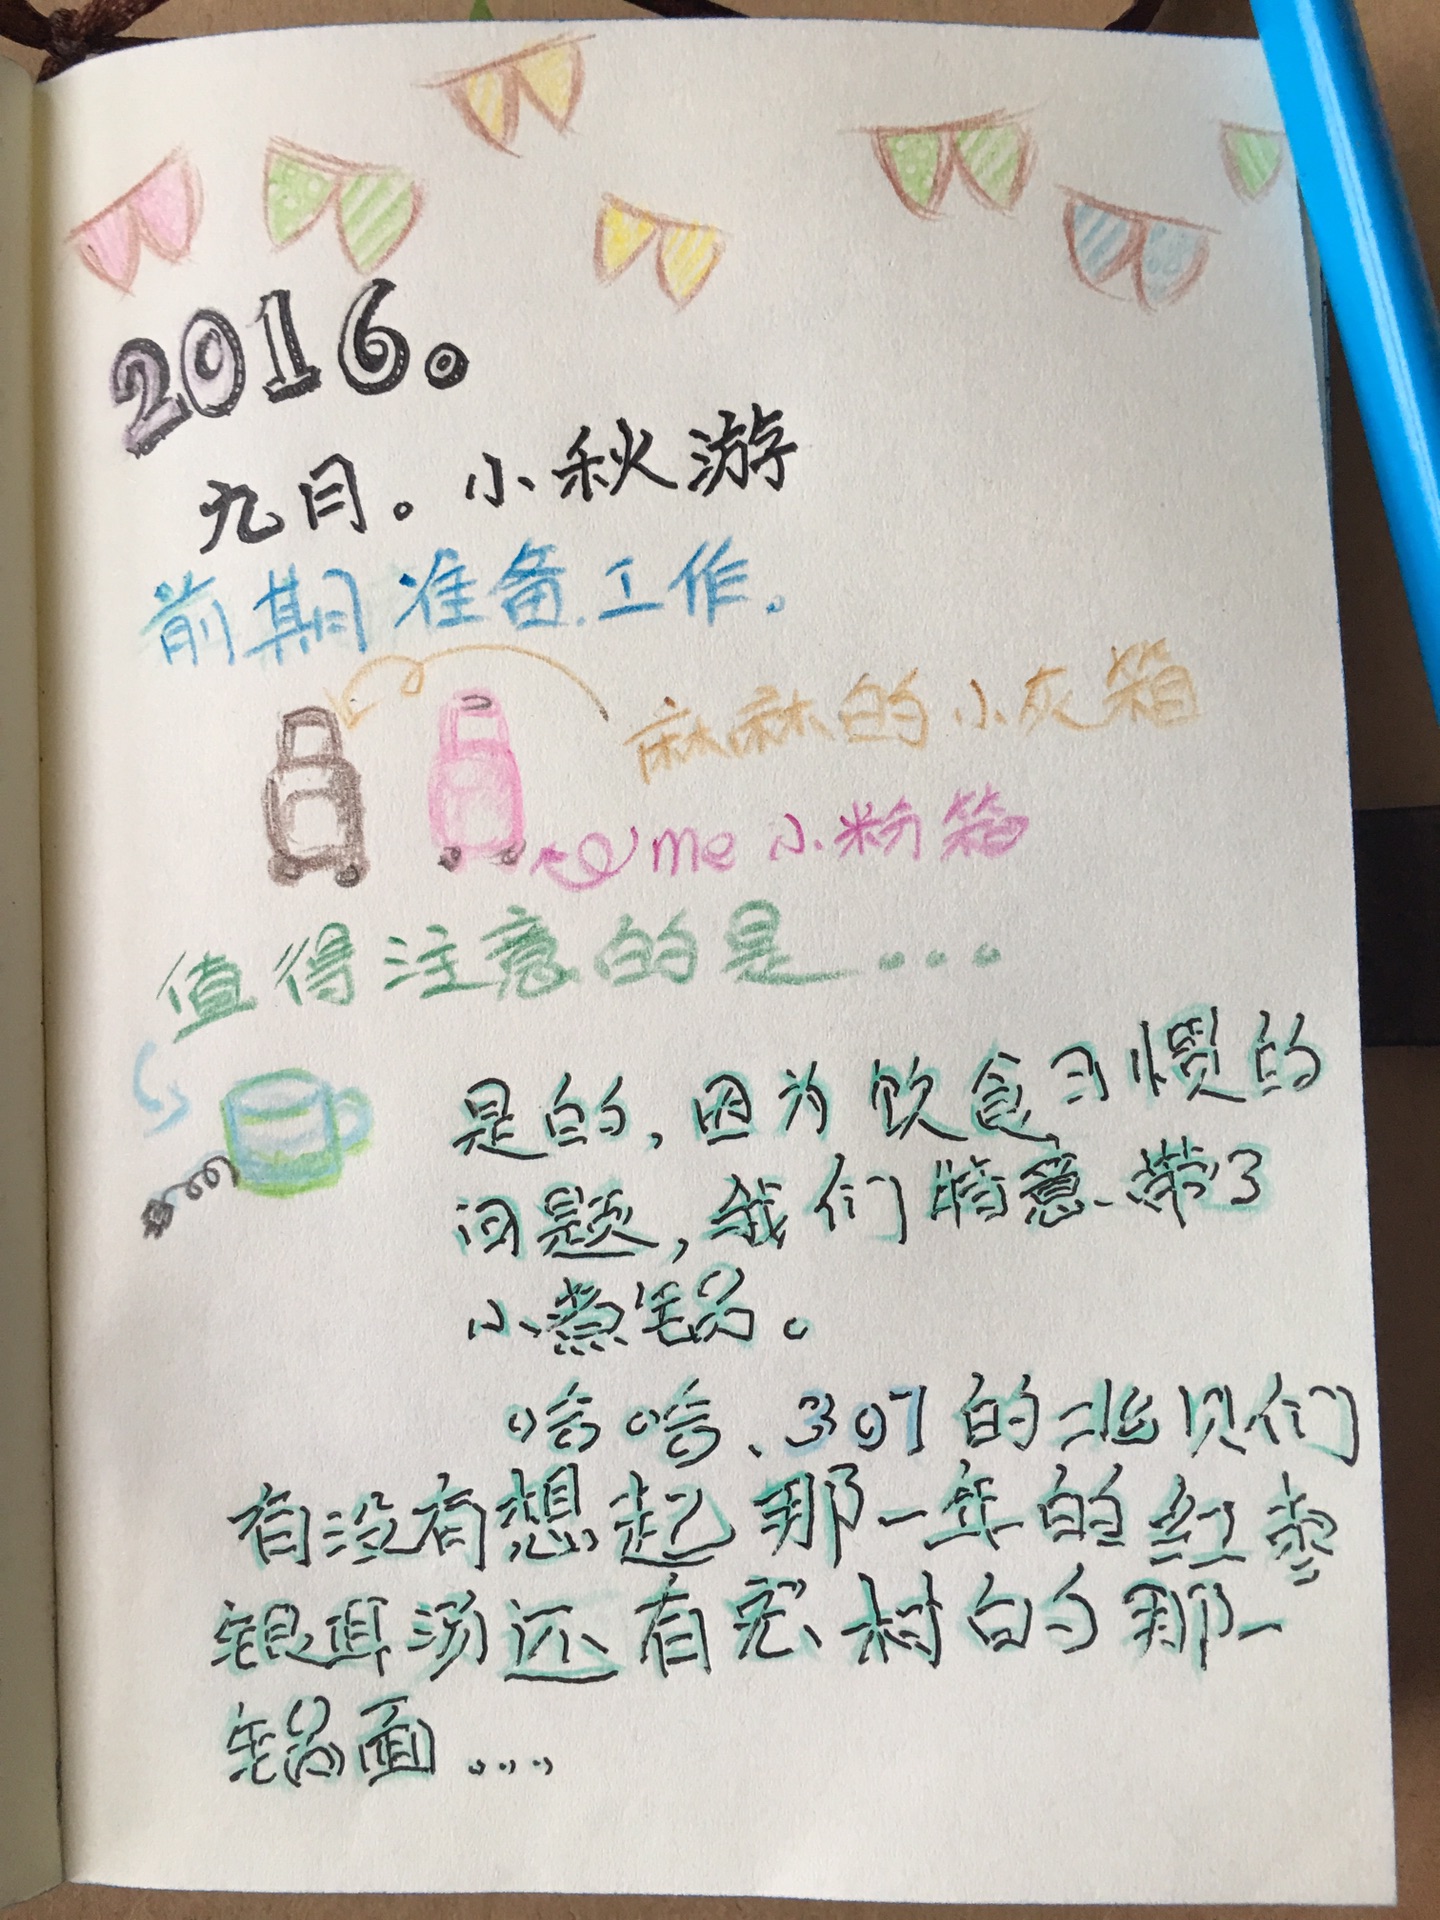 2016。
九月。小秋游
前期准备工作。
麻麻的小灰箱
me 小粉箱
值得注意的是...
是的,因为饮食习惯的
问题,我们特意带了
小煮锅。
哈哈、307的北贝们
有没有想起那一年的红枣
银耳汤还有宏村的那一
锅面....